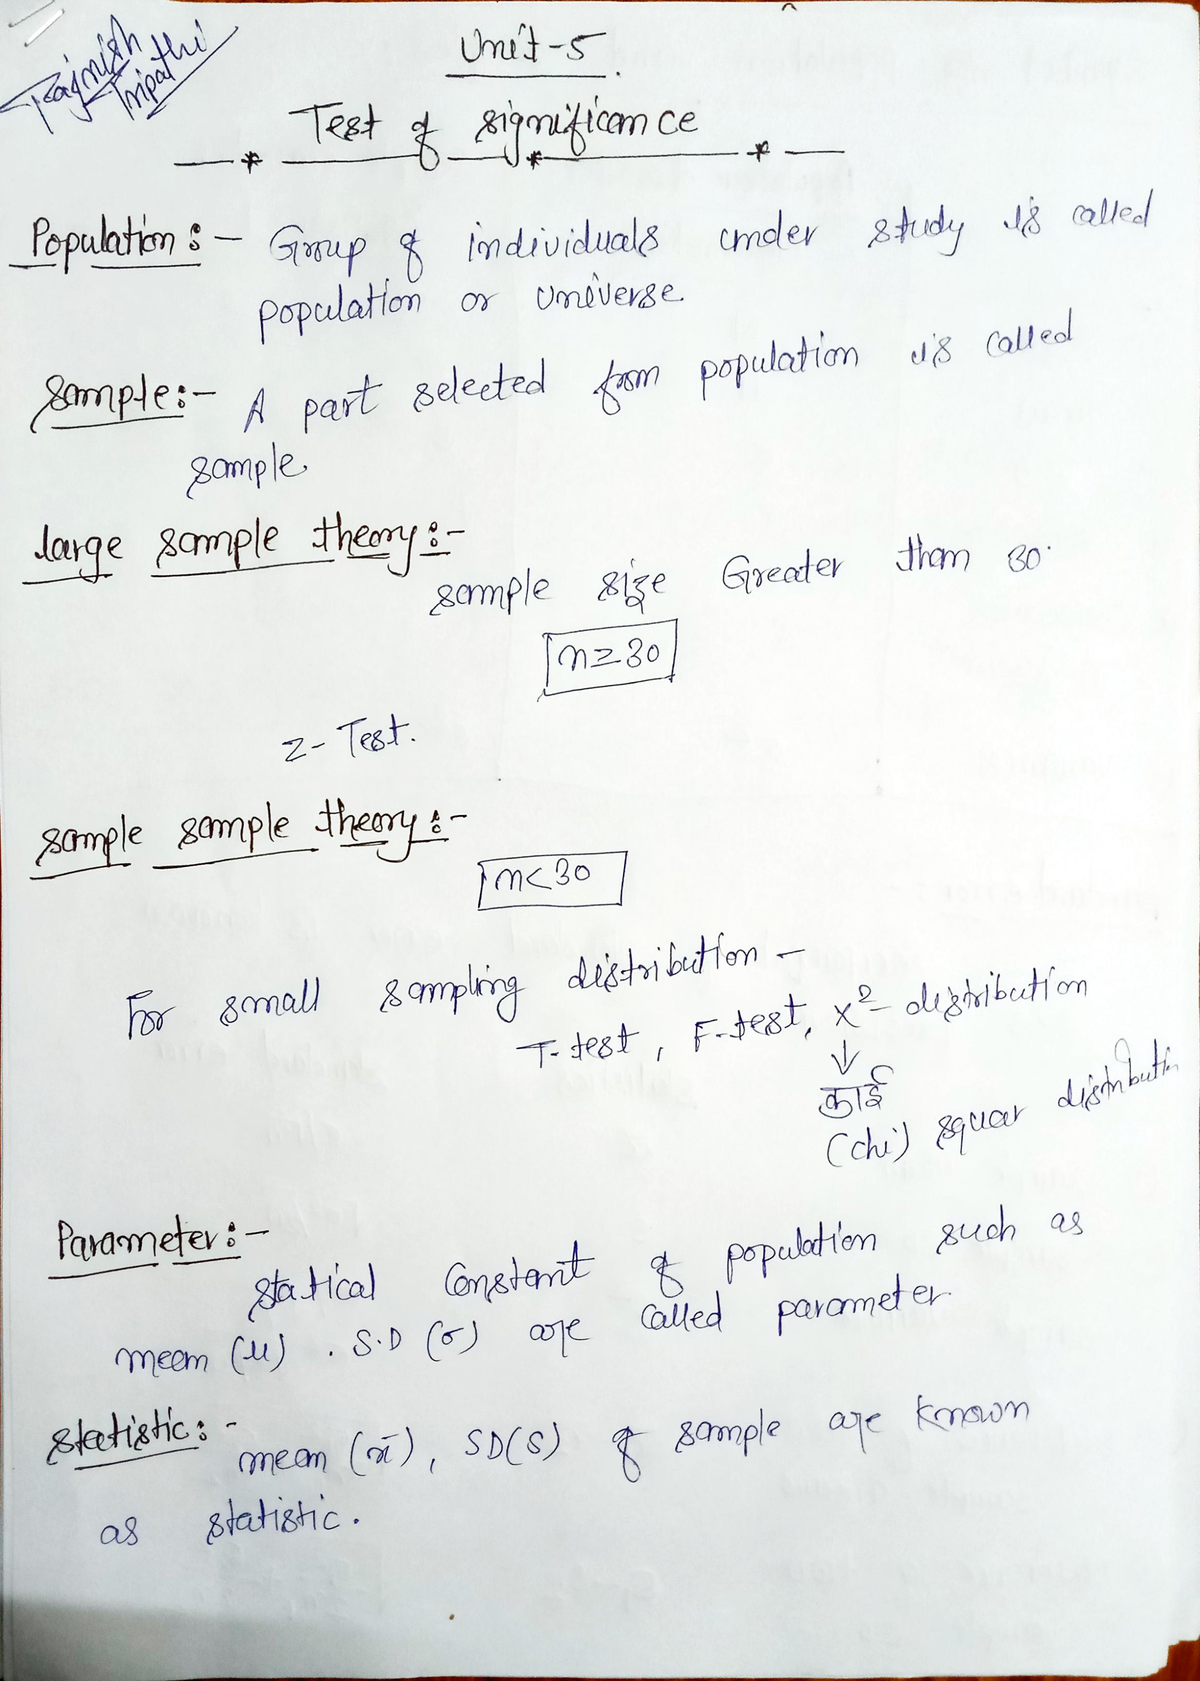 Rajnish
Tripathi
Unit-5.
Test of significance
Population:- Group of individuals under study is called
population or universe.
Sample:- A part selected from population is called
sample.
large sample theory:-
sample size Greater than 30.
n≥30
z- Test.
sample sample theory:-
n<30
For small sampling distribution -
T-test, F-test, x²- distribution
↓
काई
(chi) squar distribution
Parameter:-
statical Constant of population such as
mean (μ). S.D (σ) are called parameter.
Statistic:-
mean (x̄), SD(S) of sample are known
as statistic.